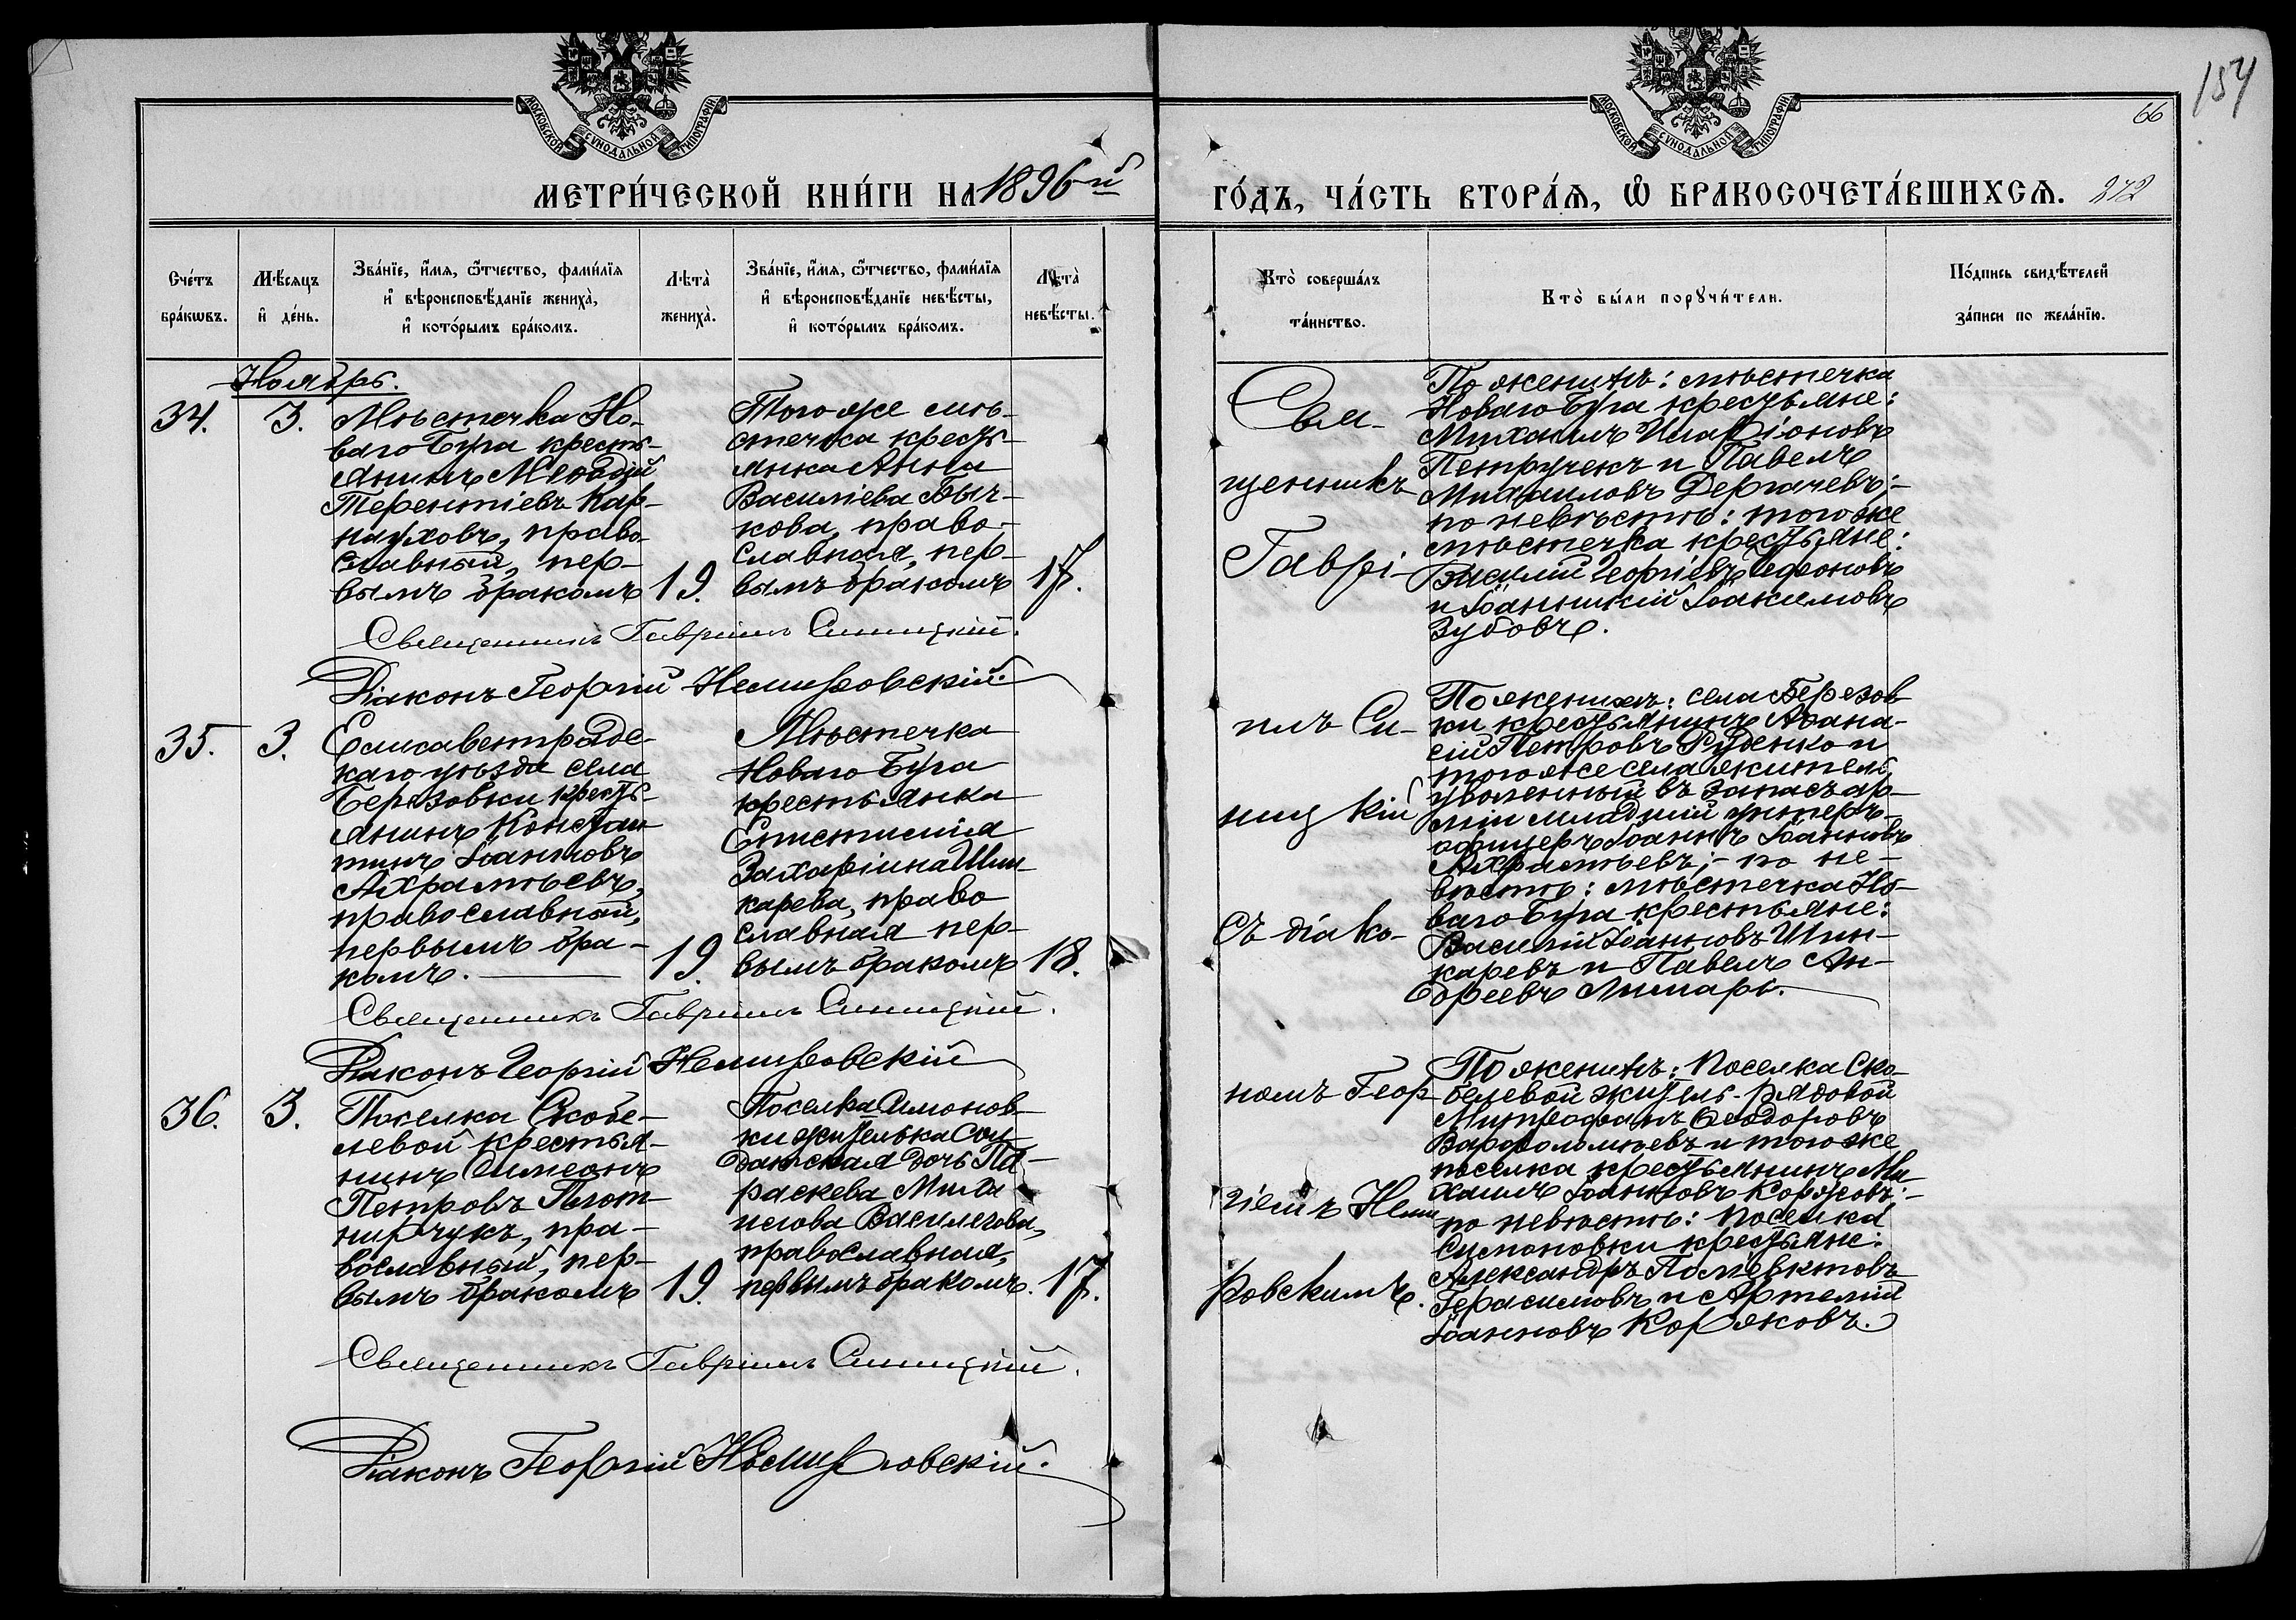 МОСКОВСКОЙ СѴНОДАЛЬНОЙ ТИПОГРАФІИ
МЕТРИ́ЧЕСКОЙ КНИ́ГИ НА 1896й
Сче́тъ
бра́кѡвъ.
Мѣ́сѧцъ
и҆ де́нь.
Зва́нїе, и҆́мѧ, ѻ҆́тчество, фами́лїѧ
и҆ вѣроисповѣ́данїе жениха̀,
и҆ кото́рымъ бра́комъ.
Лѣ́та
жениха̀.
Зва́нїе, и҆́мѧ, ѻ҆́тчество, фами́лїѧ
и҆ вѣроисповѣ́данїе невѣ́сты,
и҆ кото́рымъ бра́комъ.
Лѣ́та
невѣ́сты.
Ноябрь.
34.
3.
Мѣстечка Но-
ваго Буга кресть-
янинъ Меѳодій
Терентіевъ Кар-
науховъ, право-
славный, пер-
вымъ бракомъ
19.
Того же мѣ-
стечка кресть-
янка Анна
Василіева Быч-
кова, право-
славная, пер-
вымъ бракомъ
17.
Священникъ Гавріилъ Синицкій.
Діаконъ Георгій Немировскій.
35.
3.
Елисаветградс-
каго уѣзда села
Березовки кресть-
янинъ Констан-
тинъ Іоанновъ
Ахрамѣевъ,
православный,
первымъ бра-
комъ.
19.
Мѣстечка
Новаго Буга
крестьянка
Епистимія
Захаріина Шин-
карева, право
славная пер-
вымъ бракомъ
18.
Священникъ Гавріилъ Синицкій.
Діаконъ Георгій Немировскій
36.
3.
Поселка Скобе-
левой крестья-
нинъ Симеонъ
Петровъ Плот-
ничукъ, пра-
вославный, пер-
вымъ бракомъ
19.
Поселка Симонов-
ки жителька Сол
датская дочь Па-
раскева
Василегова,
православная,
первымъ бракомъ.
17.
Священникъ Гавріилъ Синицкій.
Діаконъ Георгій Немировскій.
154
66
МОСКОВСКОЙ СѴНОДАЛЬНОЙ ТИПОГРАФІИ
ГО́ДЪ, ЧА́СТЬ ВТОРА́Ѧ, Ѡ҆ БРАКОСОЧЕТА́ВШИХСѦ. 272
Кто̀ соверша́лъ
та́инство.
Кто̀ бы́ли порꙋчи́тели.
По́дпись свидѣ́телей
за́писи по жела́нїю.
Свя-
щенникъ
Гаврі-
илъ Си-
ницкій
съ діако-
номъ Геор-
гіемъ Неми
ровскимъ.
По женихѣ: мѣстечка
Новаго Буга крестьяне:
Михаилъ Иларіоновъ
Петручекъ и Павелъ
Михаиловъ Дергачевъ;-
по невѣстѣ: того же
мѣстечка крестьяне:
Василій Георгіевъ
и Іоанникій Іоакимовъ
Зубовъ.
По женихѣ: села Березов
ки крестьянинъ Аѳана-
сій Петровъ Руденко и
того же села житель
уволенный въ запасъ ар-
міи младшій унтеръ-
офицеръ Іоаннъ Іоанновъ
Ахрамѣевъ;- по не-
вѣстѣ: мѣстечка Но-
ваго Буга крестьяне:
Василій Іоанновъ Шин-
каревъ и Павелъ Ан-
дреевъ Лимарь.
По женихѣ: Поселка Ско-
белевой житель рядовой
Митрофанъ Ѳеодоровъ
Варѳоломѣевъ и того же
поселка крестьянинъ Ми-
хаилъ Іоанновъ Коржовъ:-
по невѣстѣ: поселка
Симоновки крестьяне:
Александръ Поліевктовъ
Герасимовъ и Артемій
Іоанновъ Коржовъ.